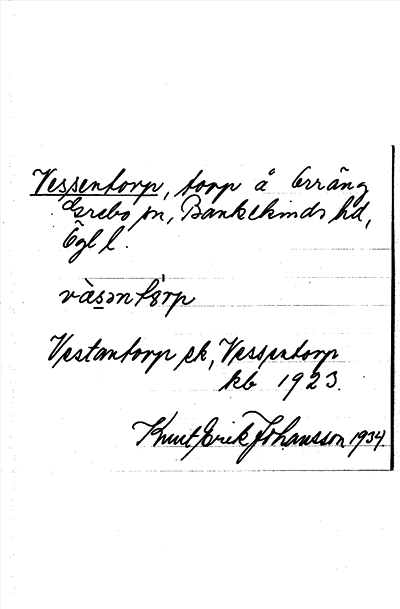 Vessentorp, torp å Erräng
Grebo sn, Bankekinds hd,
Ögl l.
vàsən tǫrp
Vestantorp ek, Vessentorp
kb 1923.
Knut Erik Johansson 1934.